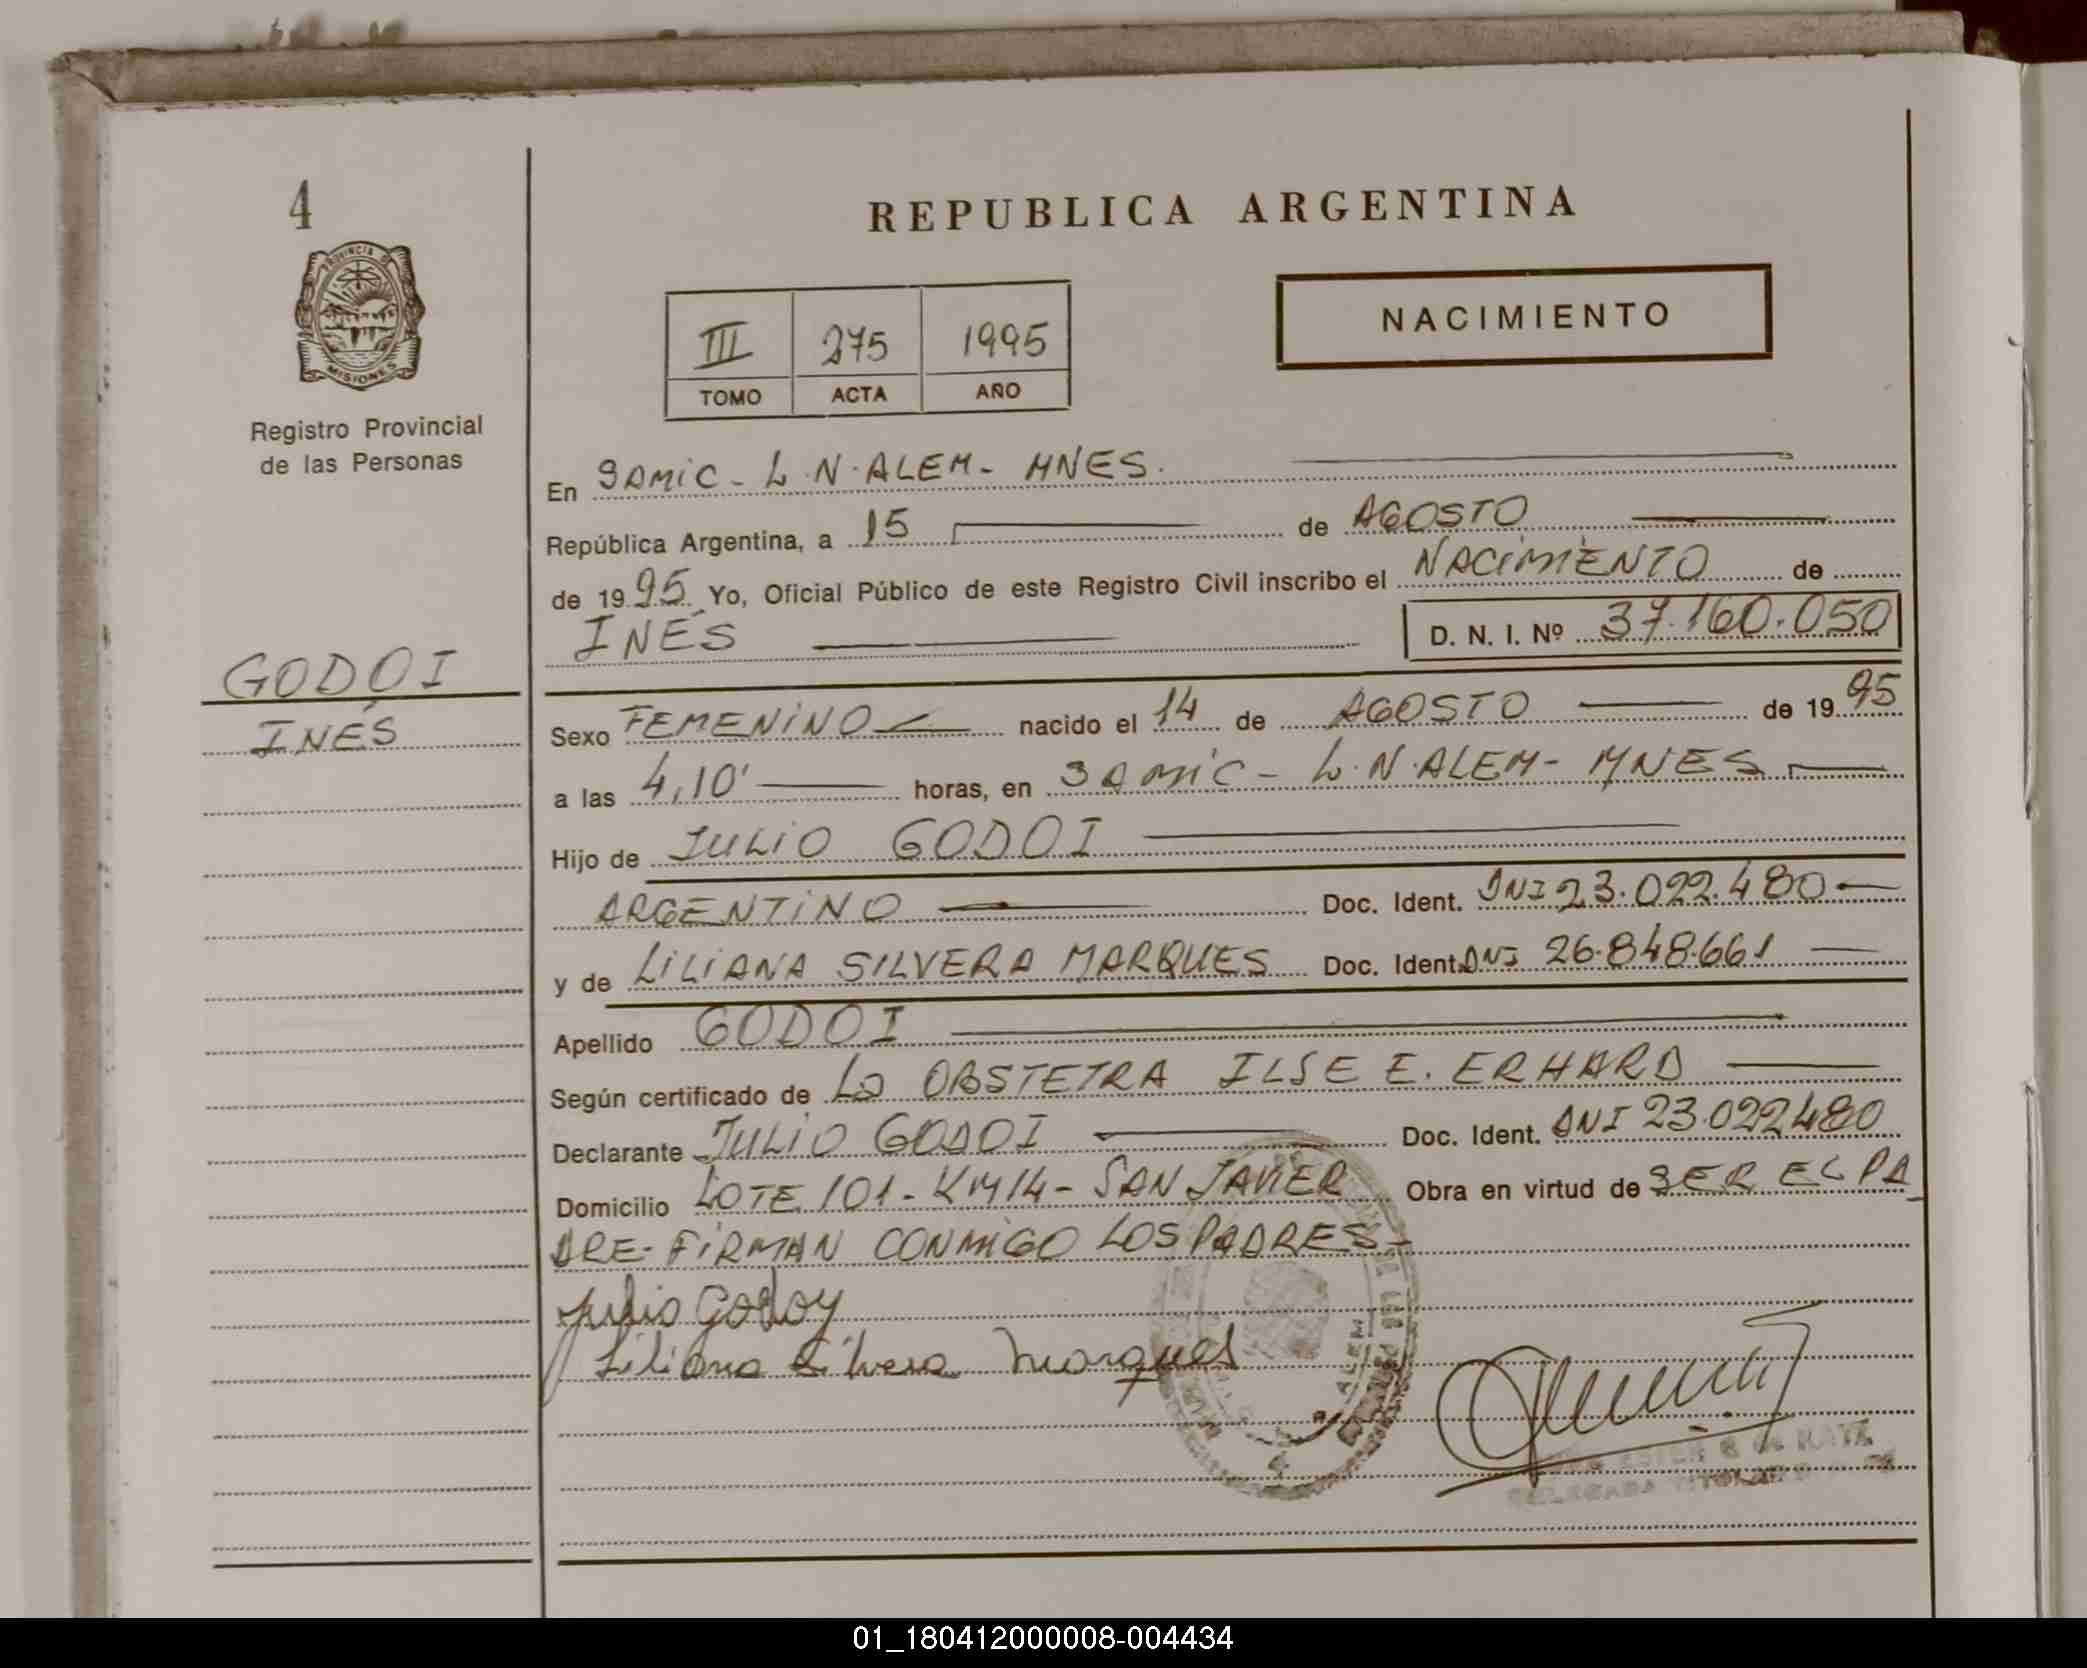 4
PROVINCIA DE
MISIONES
Registro Provincial
de las Personas
GODOI
INÉS
REPUBLICA ARGENTINA
III 275 1995
TOMO ACTA AÑO
NACIMIENTO
En SAMIC - L.N.ALEM - MNES.
República Argentina, a 15 de AGOSTO
de 1995 Yo, Oficial Público de este Registro Civil inscribo el NACIMIENTO de
INÉS D. N. I. Nº 37.160.050
Sexo FEMENINO nacido el 14 de AGOSTO de 1995
a las 4,10' horas, en SAMIC - L.N.ALEM - MNES
Hijo de JULIO GODOI
ARGENTINO Doc. Ident. DNI 23.022.480
y de LILIANA SILVERA MARQUES Doc. Ident. DNI 26.848.661
Apellido GODOI
Según certificado de LA OBSTETRA ILSE E. ERHARD
Declarante JULIO GODOI Doc. Ident. DNI 23.022480
Domicilio LOTE 101 - KM14 - SAN JAVIER Obra en virtud de SER EL PA
DRE - FIRMAN CONMIGO LOS PADRES -
Julio Godoy
Liliana Silvera Marques
ALEM
KATZ
DELEGADA TITULAR
01_180412000008-004434